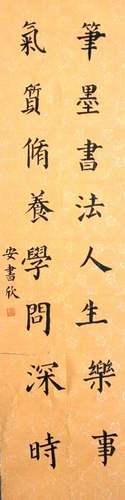 筆墨書法人生樂事
氣質脩養學問深時
安書欣